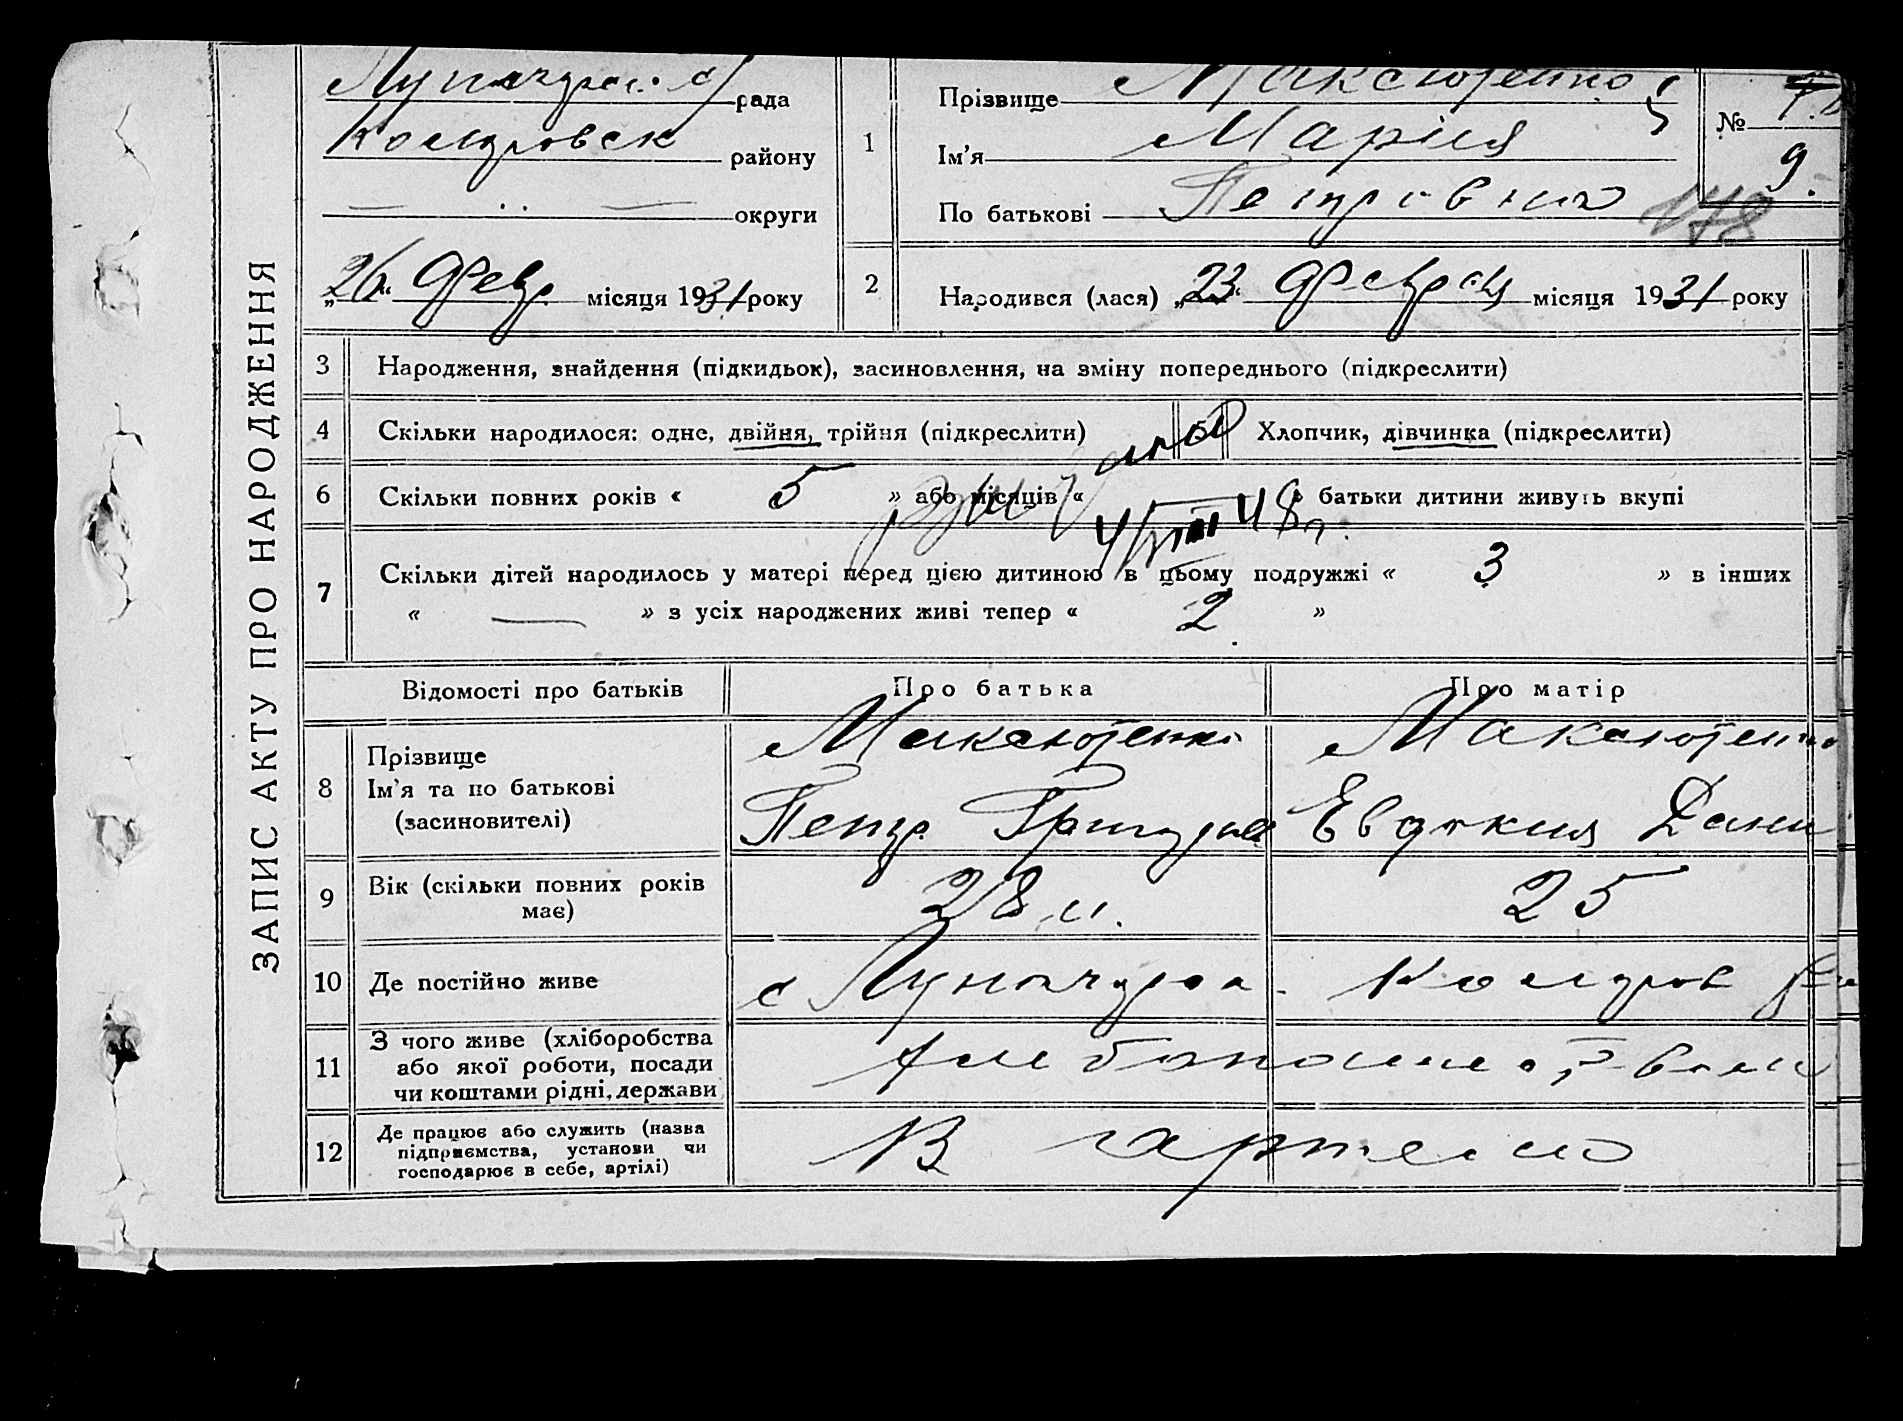 ЗАПИС АКТУ ПРО НАРОДЖЕННЯ
рада
району
округи
„26“ Февр місяця 1931 року
1
Прізвище
Ім'я Марія
По батькові Петровна
№
9.
178
2
Народився (лася) „23“ Февраля місяця 1931 року
3 Народження, знайдення (підкидьок), засиновлення, на зміну попереднього (підкреслити)
4 Скільки народилося: одне, двійня, трійня (підкреслити)
5 Хлопчик, дівчинка (підкреслити)
6 Скільки повних років « 5 » або місяців « » батьки дитини живуть вкупі
4/VIII 48г.
7 Скільки дітей народилось у матері перед цією дитиною в цьому подружжі « 3 » в інших
« — » з усіх народжених живі тепер « 2 »
Відомості про батьків
Про батька
Про матір
8
Прізвище
Ім'я та по батькові
(засиновителі)
Петр
Евдокия Дани
9
Вік (скільки повних років
має)
28
25
10 Де постійно живе
с
11
З чого живе (хліборобства
або якої роботи, посади
чи коштами рідні, держави
12
Де працює або служить (назва
підприємства, установи чи
господарює в себе, артілі)
В артели